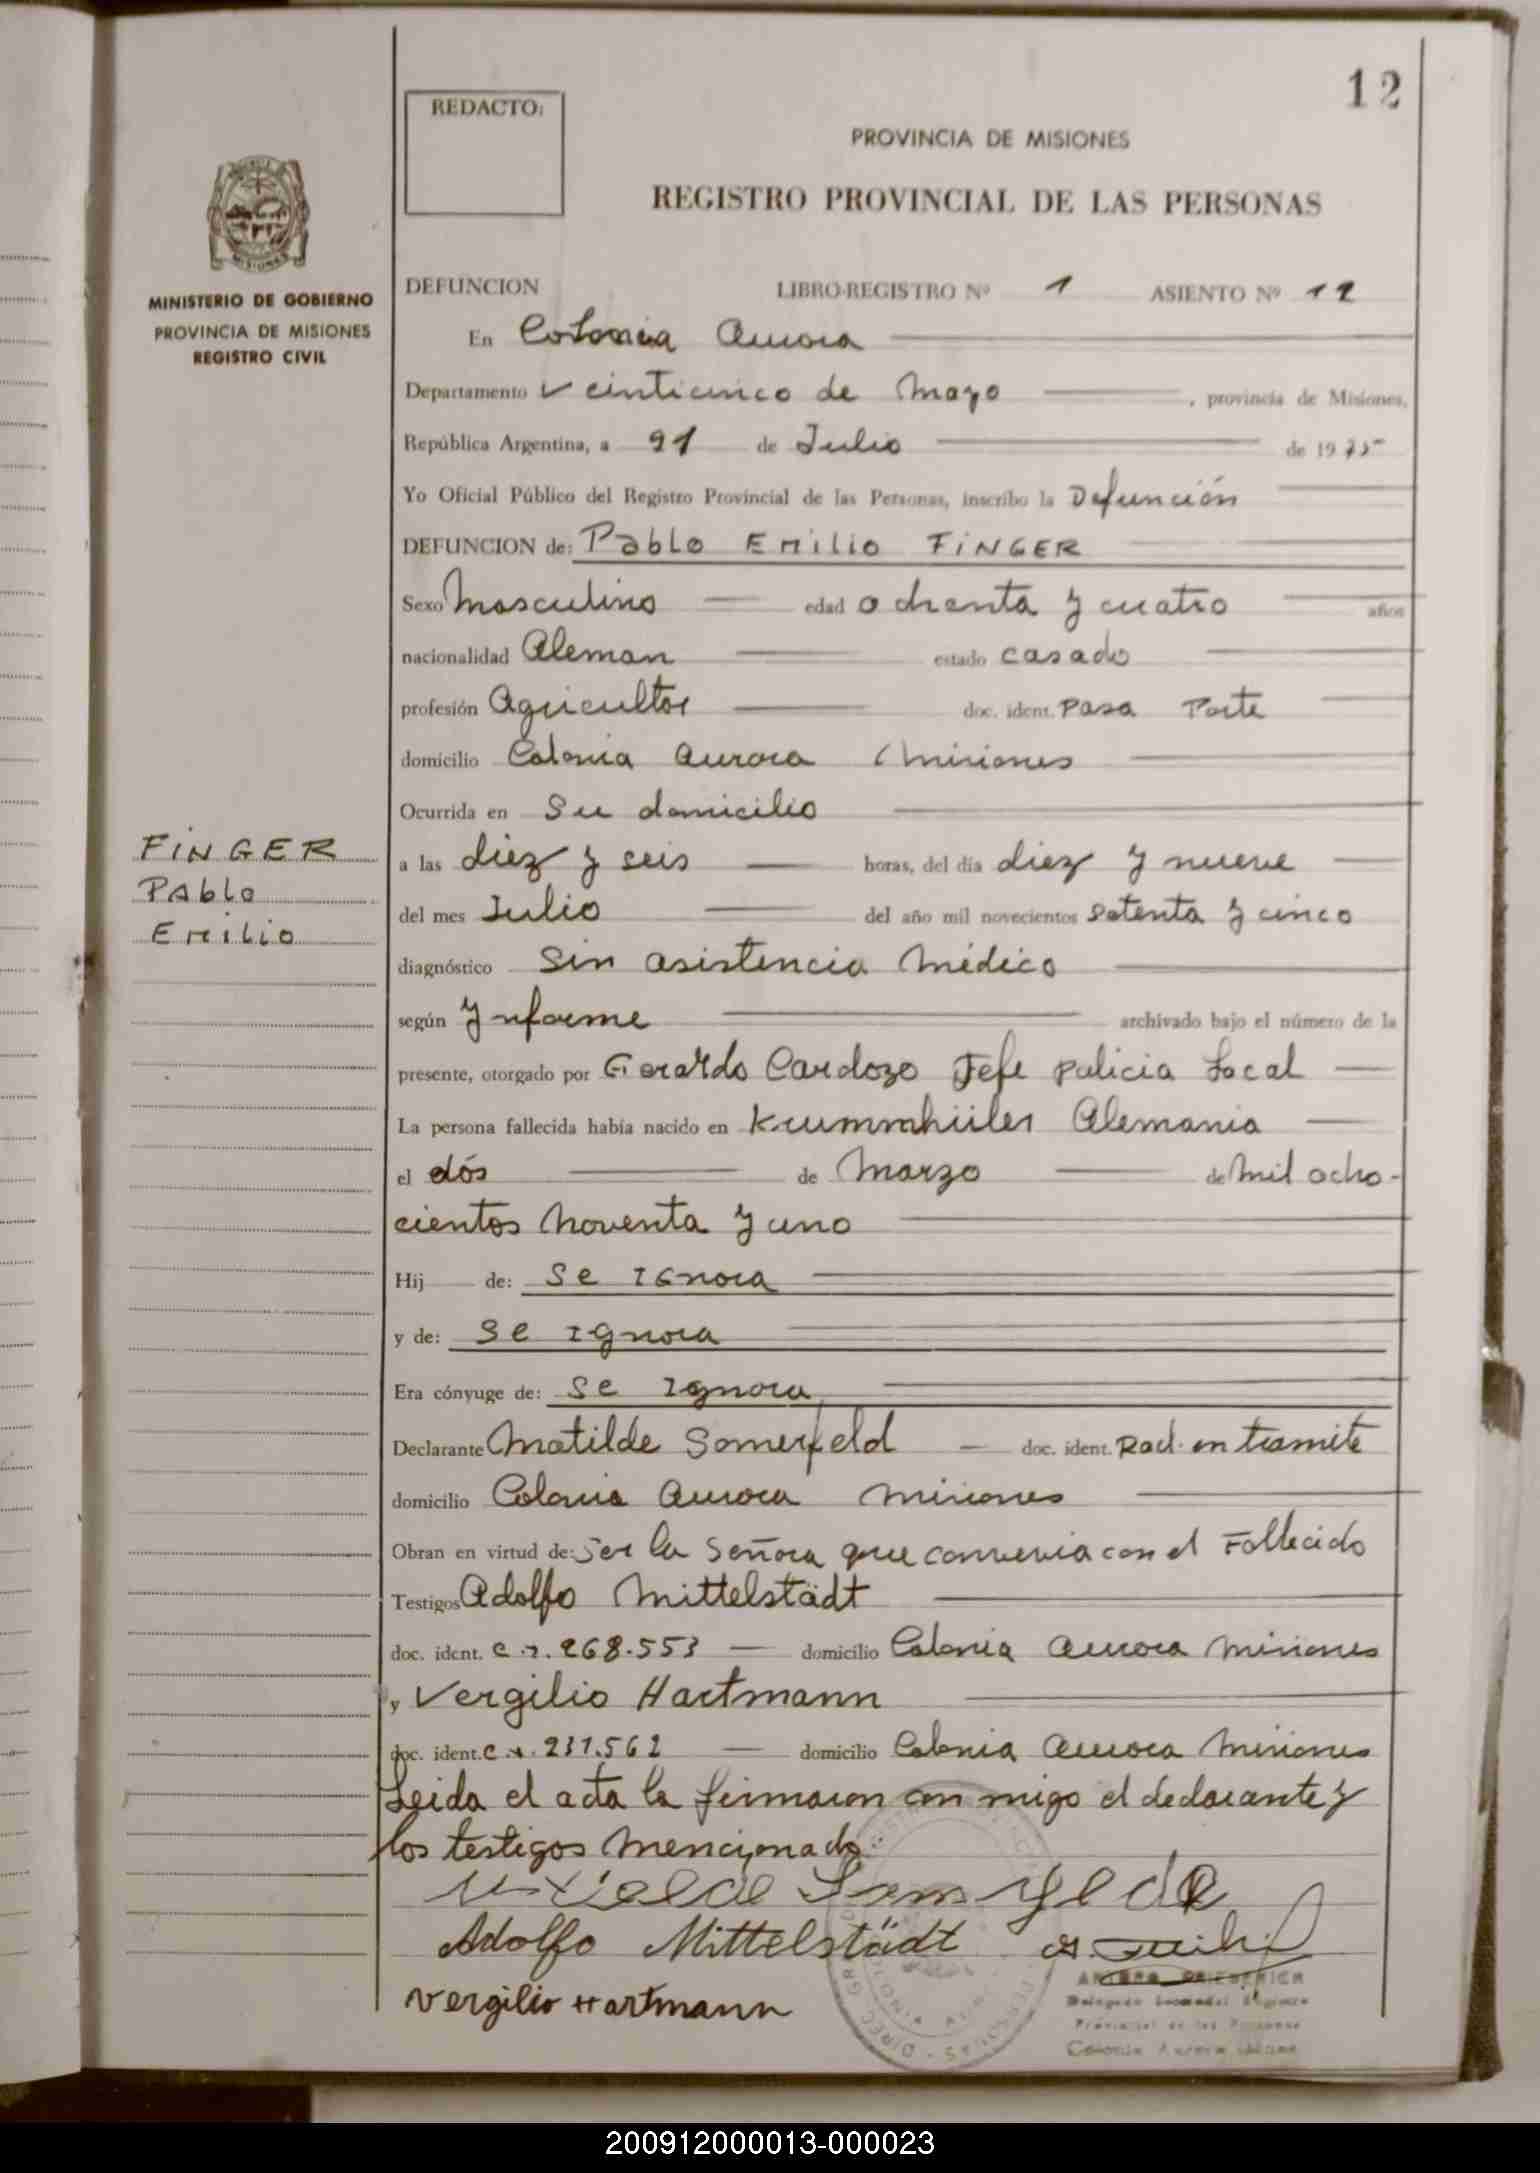 12
REDACTO:
PROVINCIA DE MISIONES
REGISTRO PROVINCIAL DE LAS PERSONAS
MISIONES
MINISTERIO DE GOBIERNO
PROVINCIA DE MISIONES
REGISTRO CIVIL
DEFUNCION LIBRO-REGISTRO Nº 1 ASIENTO Nº 12
En Colonia Aurora
Departamento Veinticinco de Mayo , provincia de Misiones,
República Argentina, a 21 de Julio de 1975
Yo Oficial Público del Registro Provincial de las Personas, inscribo la Defunción
DEFUNCION de: Pablo Emilio FINGER
Sexo Masculino edad ochenta y cuatro años
nacionalidad Aleman estado casado
profesión Agricultor doc. ident. Pasa Porte
domicilio Colonia Aurora Misiones
Ocurrida en Su domicilio
FINGER
Pablo
Emilio
a las diez y seis horas, del día diez y nueve
del mes Julio del año mil novecientos setenta y cinco
diagnóstico Sin asistencia Médico
según Ynforme archivado bajo el número de la
presente, otorgado por Gerardo Cardozo Jefe policia Local
La persona fallecida había nacido en Krummhüler Alemania
el dós de Marzo de mil ocho-
cientos Noventa y uno
Hij de: Se IGnora
y de: Se Ignora
Era cónyuge de: Se Ignora
Declarante Matilde Somerfeld doc. ident. Rad. en tramite
domicilio Colonia Aurora Misiones
Obran en virtud de: Ser la Señora que convevia con el Fallecido
Testigos Adolfo Mittelstädt
doc. ident. C.I. 268.553 domicilio Colonia Aurora Misiones
y Vergilio Hartmann
doc. ident. C.I. 231.562 domicilio Colonia Aurora Misiones
Leida el acta la firmaron con migo el declarante y
los testigos mencionado
Adolfo Mittelstädt
Vergilio Hartmann
Colonia Aurora
200912000013-000023